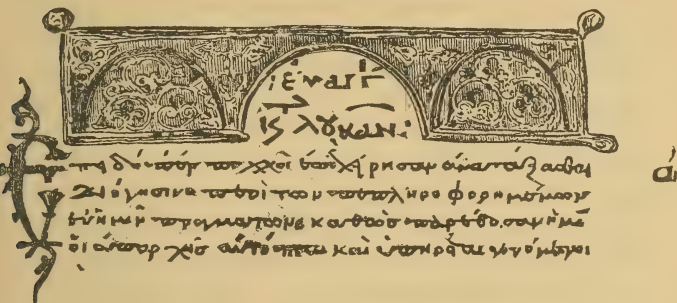 εὐαγγ
ις λουκαν:
Ἐπειδήπερ πολλοὶ ἐπεχείρησαν ἀνατάξασθαι
διήγησιν περὶ τῶν πεπληροφορημένων
ἐν ἡμῖν πραγμάτων καθὼς παρέδοσαν ἡμῖν
οἱ ἀπ' ἀρχῆς αὐτόπται καὶ ὑπηρέται γενόμενοι